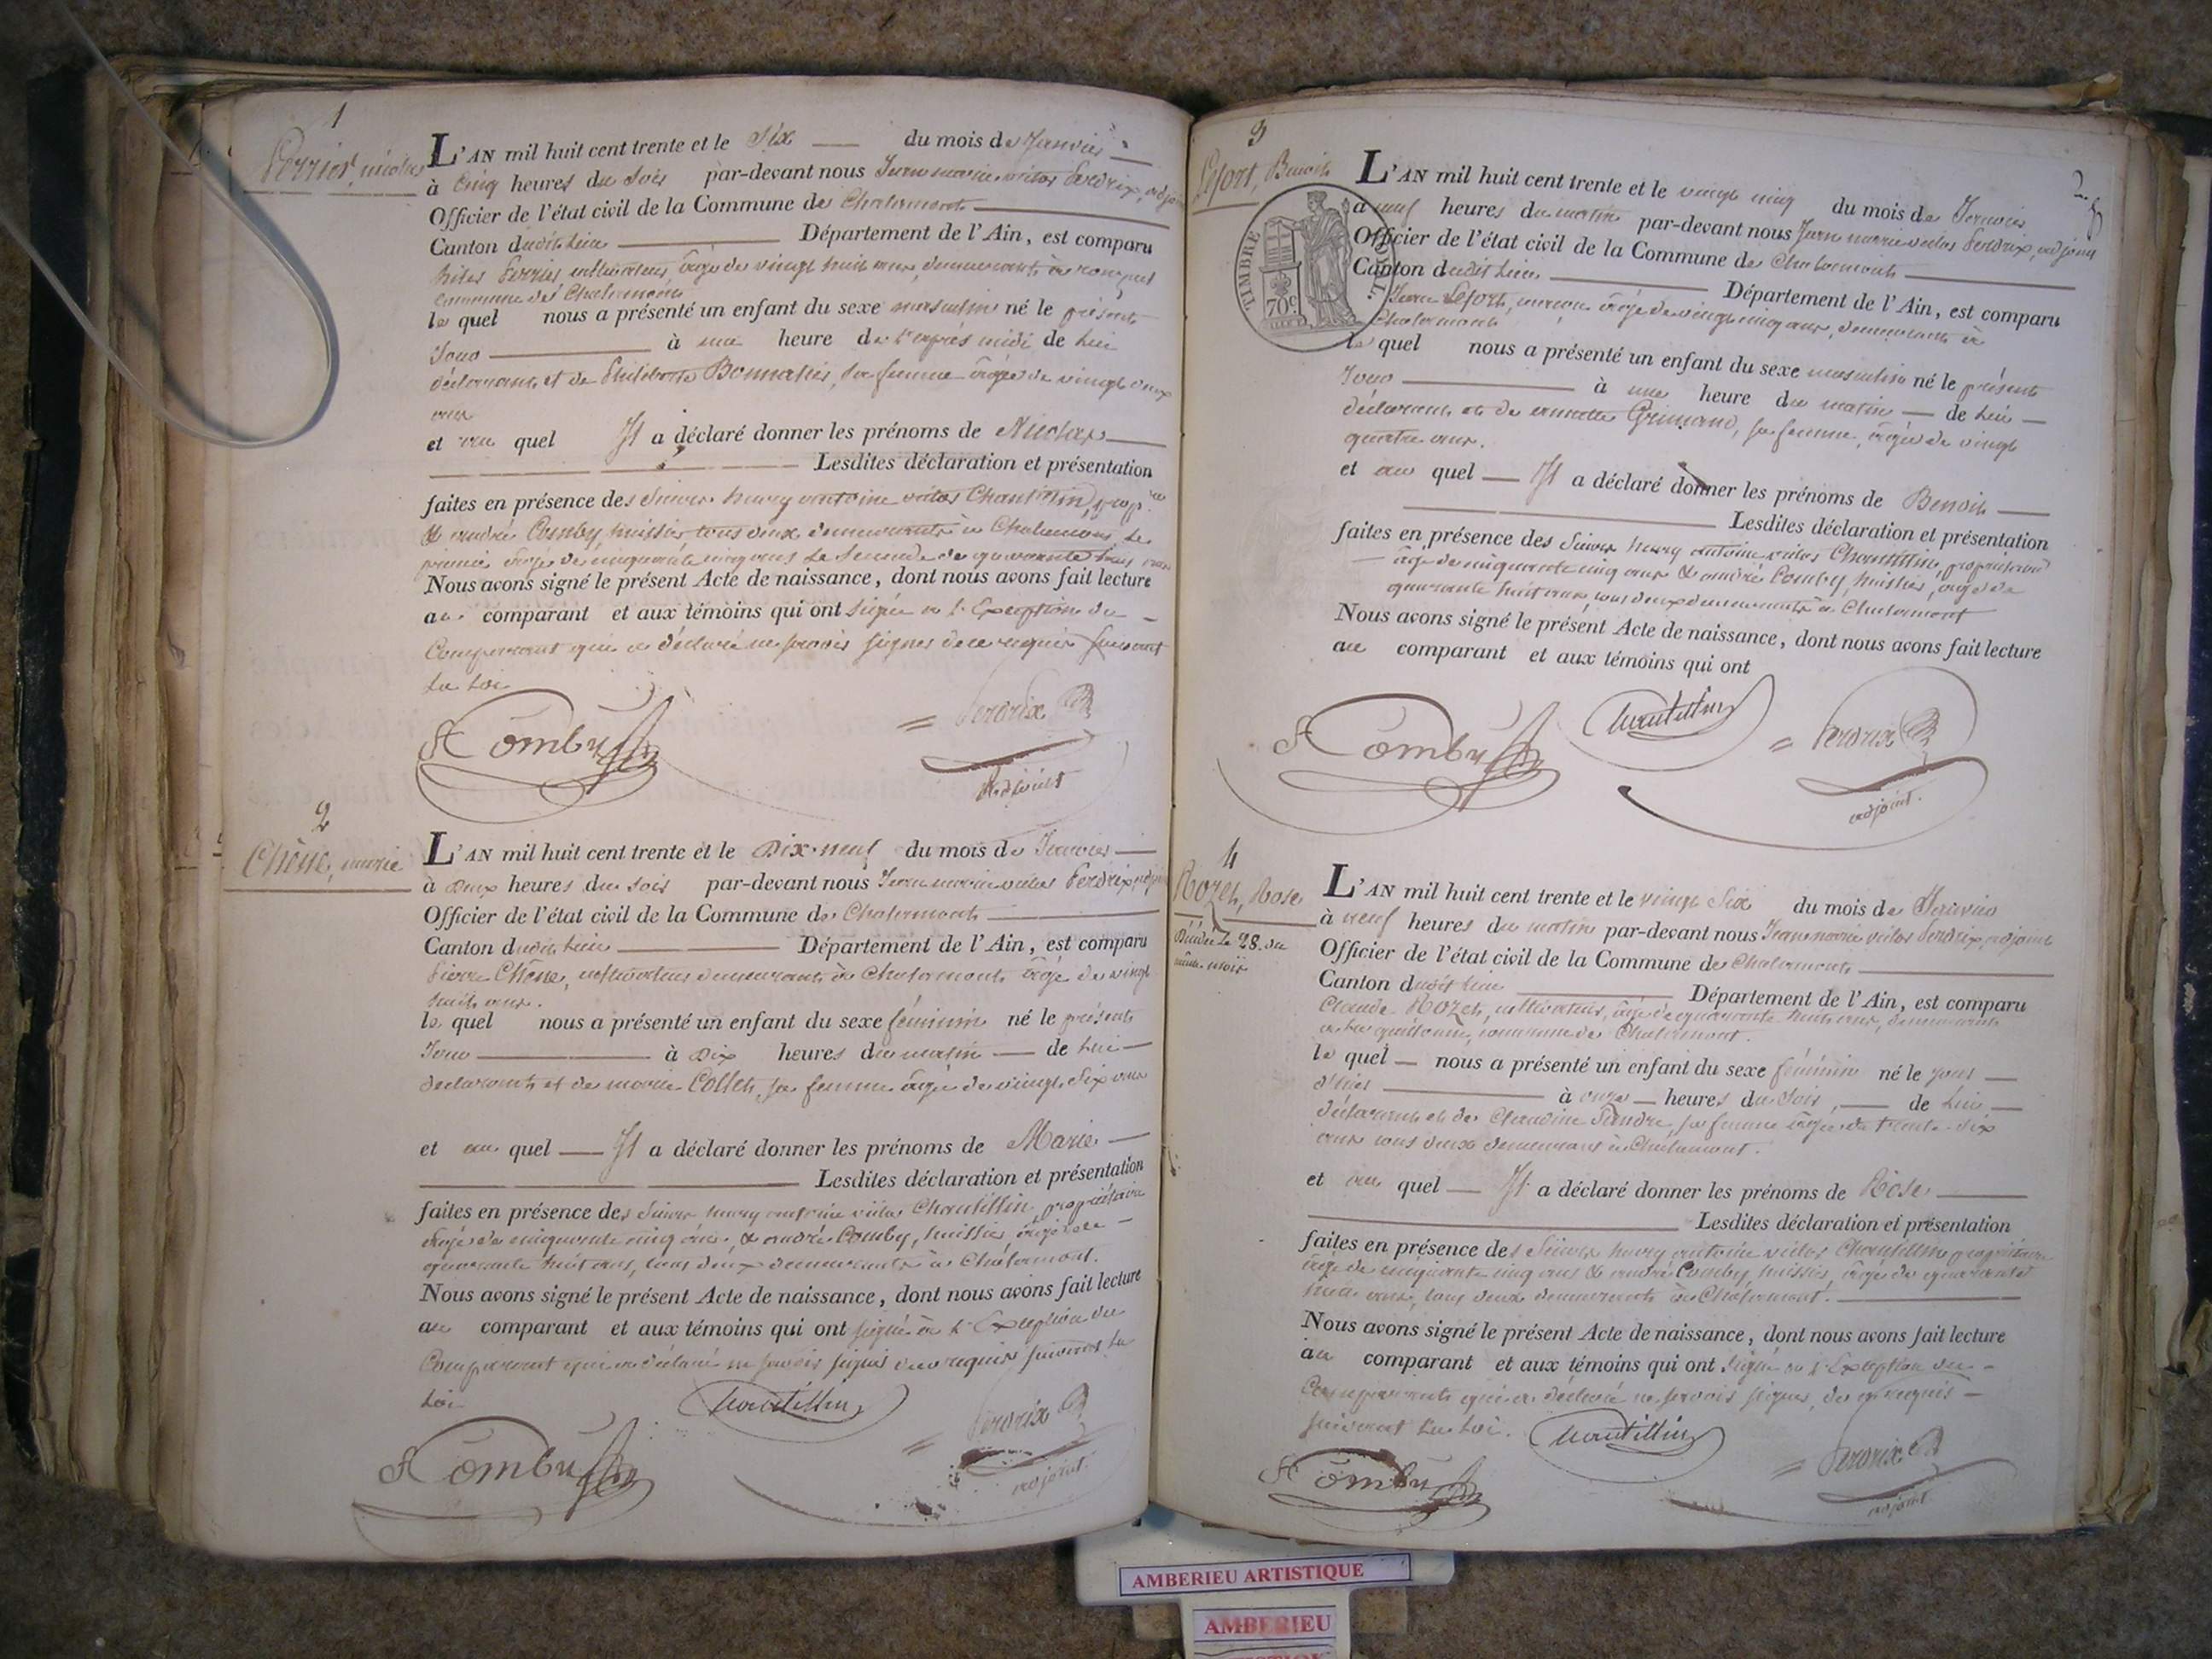 1
Perrier, nicolas
L'AN mil huit cent trente et le Six du mois de Janvier
à Cinq heures du Soir par-devant nous Jean marie vital Perdrix, adjoint
Officier de l'état civil de la Commune de Chalamont
Canton dudit Lieu Département de l'Ain, est comparu
Perrier cultivateur âgé de vingt huit ans, demeurant à
Commune de Chalamont
le quel nous a présenté un enfant du sexe masculin né le présent
Jour à une heure de l'après midi de Lui
déclarant et de Philiberte Bonnatier, sa femme âgée de vingt deux
ans
et au quel Il a déclaré donner les prénoms de Nicolas
Lesdites déclaration et présentation
faites en présence des Sieurs henry antoine vital Chantillin, prop.re
& andré Comby, huissier tous deux demeurants à Chalamont, le
premier âgé de cinquante cinq ans le Second de quarante huit ans
Nous avons signé le présent Acte de naissance, dont nous avons fait lecture
au comparant et aux témoins qui ont Signé à l'Exception du
Comparant qui a déclaré ne savoir signer de ce requis suivant
La Loi
A Comby
Perdrix
adjoint
2
Chêne, marie
L'AN mil huit cent trente et le Dix-neuf du mois de Janvier
à Deux heures du Soir par-devant nous Jean marie vital Perdrix, adjoint
Officier de l'état civil de la Commune de Chalamont
Canton dudit Lieu Département de l'Ain, est comparu
Pierre Chêne, cultivateur demeurant à Chalamont âgé de vingt
huit ans.
le quel nous a présenté un enfant du sexe féminin né le présent
Jour à Dix heures du matin de Lui
déclarant et de marie Collet, sa femme âgée de vingt Six ans
et au quel Il a déclaré donner les prénoms de Marie
Lesdites déclaration et présentation
faites en présence des Sieurs henry antoine vital Chantillin, propriétaire
âgé de cinquante cinq ans, & andré Comby, huissier, âgé de
quarante huit ans, tous deux demeurants à Chalamont.
Nous avons signé le présent Acte de naissance, dont nous avons fait lecture
au comparant et aux témoins qui ont signé à l'Exception du
Comparant qui a déclaré ne savoir signer de ce requis suivant La
Loi
Chantillin
A Comby
Perdrix
adjoint.
2
3
Lefort, Benoit
TIMBRE ROYAL.
70c
L'AN mil huit cent trente et le vingt cinq du mois de Janvier
à neuf heures du matin par-devant nous Jean marie vital Perdrix, adjoint
Officier de l'état civil de la Commune de Chalamont
Canton dudit Lieu Département de l'Ain, est comparu
Jean Lefort, maçon âgé de vingt cinq ans, demeurant à
Chalamont
le quel nous a présenté un enfant du sexe masculin né le présent
Jour à une heure du matin de Lui
déclarant et de annette Grimand, sa femme, âgée de vingt
quatre ans.
et au quel Il a déclaré donner les prénoms de Benoit
Lesdites déclaration et présentation
faites en présence des Sieurs henry antoine vital Chantillin, propriétaire
âgé de cinquante cinq ans & andré Comby, huissier, âgé de
quarante huit ans, tous deux demeurants à Chalamont
Nous avons signé le présent Acte de naissance, dont nous avons fait lecture
au comparant et aux témoins qui ont
A Comby
Chantillin
Perdrix
adjoint.
4
Rozet, Rose
Décédée le 28 du
même mois
L'AN mil huit cent trente et le vingt Six du mois de Janvier
à neuf heures du matin par-devant nous Jean marie vital Perdrix, adjoint
Officier de l'état civil de la Commune de Chalamont
Canton dudit Lieu Département de l'Ain, est comparu
Claude Rozet, cultivateur, âgé de quarante huit ans, demeurant
commune de Chalamont.
le quel nous a présenté un enfant du sexe féminin né le jour
d'hier à onze heures du Soir, de Lui
déclarant et de Claudine Tendre, sa femme âgée de trente-six
ans tous deux demeurant à Chalamont.
et au quel Il a déclaré donner les prénoms de Rose
Lesdites déclaration et présentation
faites en présence des Sieurs henry antoine vital Chantillin propriétaire
âgé de cinquante cinq ans & andré Comby, huissier, âgé de quarante
huit ans, tous deux demeurants à Chalamont.
Nous avons signé le présent Acte de naissance, dont nous avons fait lecture
au comparant et aux témoins qui ont signé à l'Exception du
Comparant qui a déclaré ne savoir signer, de ce requis
suivant La Loi.
Chantillin
A Comby
Perdrix
adjoint
AMBERIEU ARTISTIQUE
AMBERIEU